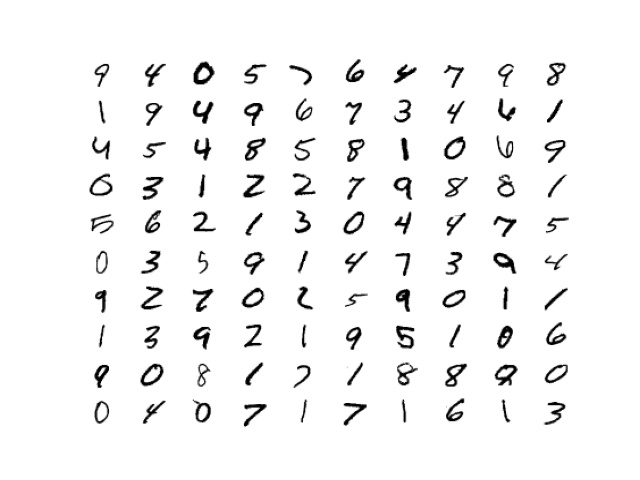 9 4 0 5 7 6 4 7 9 8
1 9 4 9 6 7 3 4 6 1
4 5 4 8 5 8 1 0 6 9
0 3 1 2 2 7 9 8 8 1
5 6 2 1 3 0 4 4 7 5
0 3 5 9 1 4 7 3 9 4
9 2 7 0 2 5 9 0 1 1
1 3 9 2 1 9 5 1 0 6
9 0 8 1 7 1 8 8 9 0
0 4 0 7 1 7 1 6 1 3